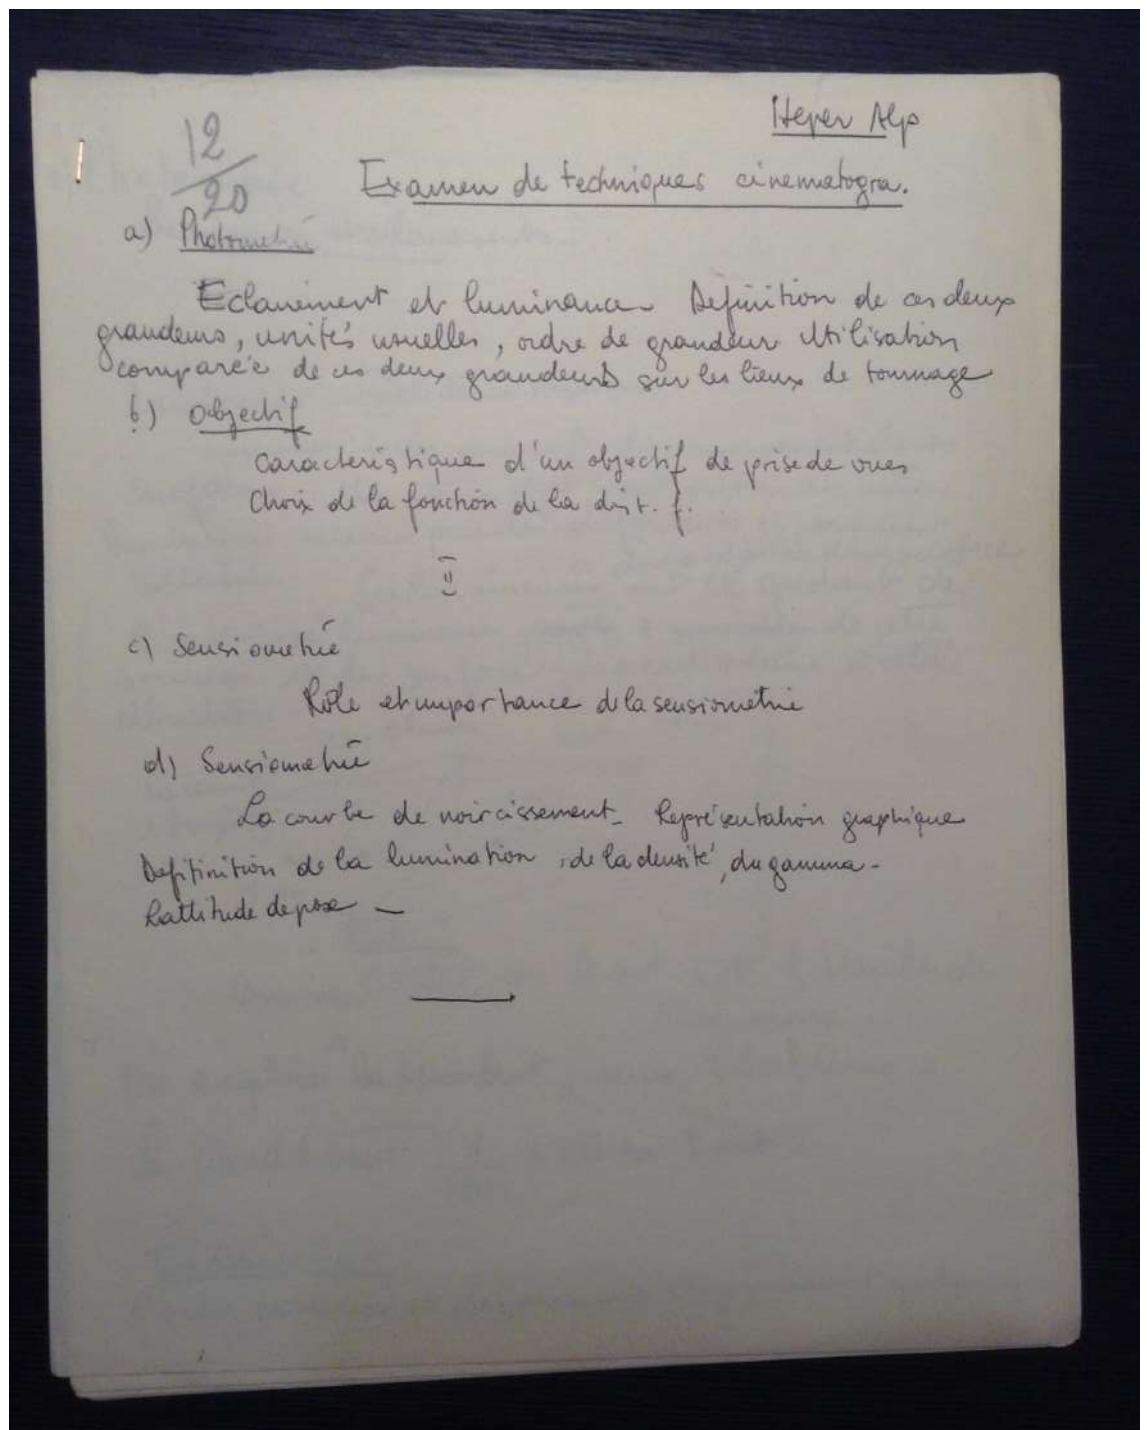 Heper Alp
12
20
Examen de techniques cinematogra.
a) Photometrie
Eclairement et luminance Definition de ces deux
grandeurs, unités usuelles, ordre de grandeur Utilisation
comparée de ces deux grandeurs sur les lieux de tournage
b) Objectif
Caracteristique d'un objectif de prise de vues
Choix de la fonction de la dist. f.
c) Sensiometrie
Rôle et importance de la sensiometrie
d) Sensiometrie
La courbe de noircissement - Représentation graphique
Defitinition de la lumination, de la densité, du gamma -
Lattitude de pose -